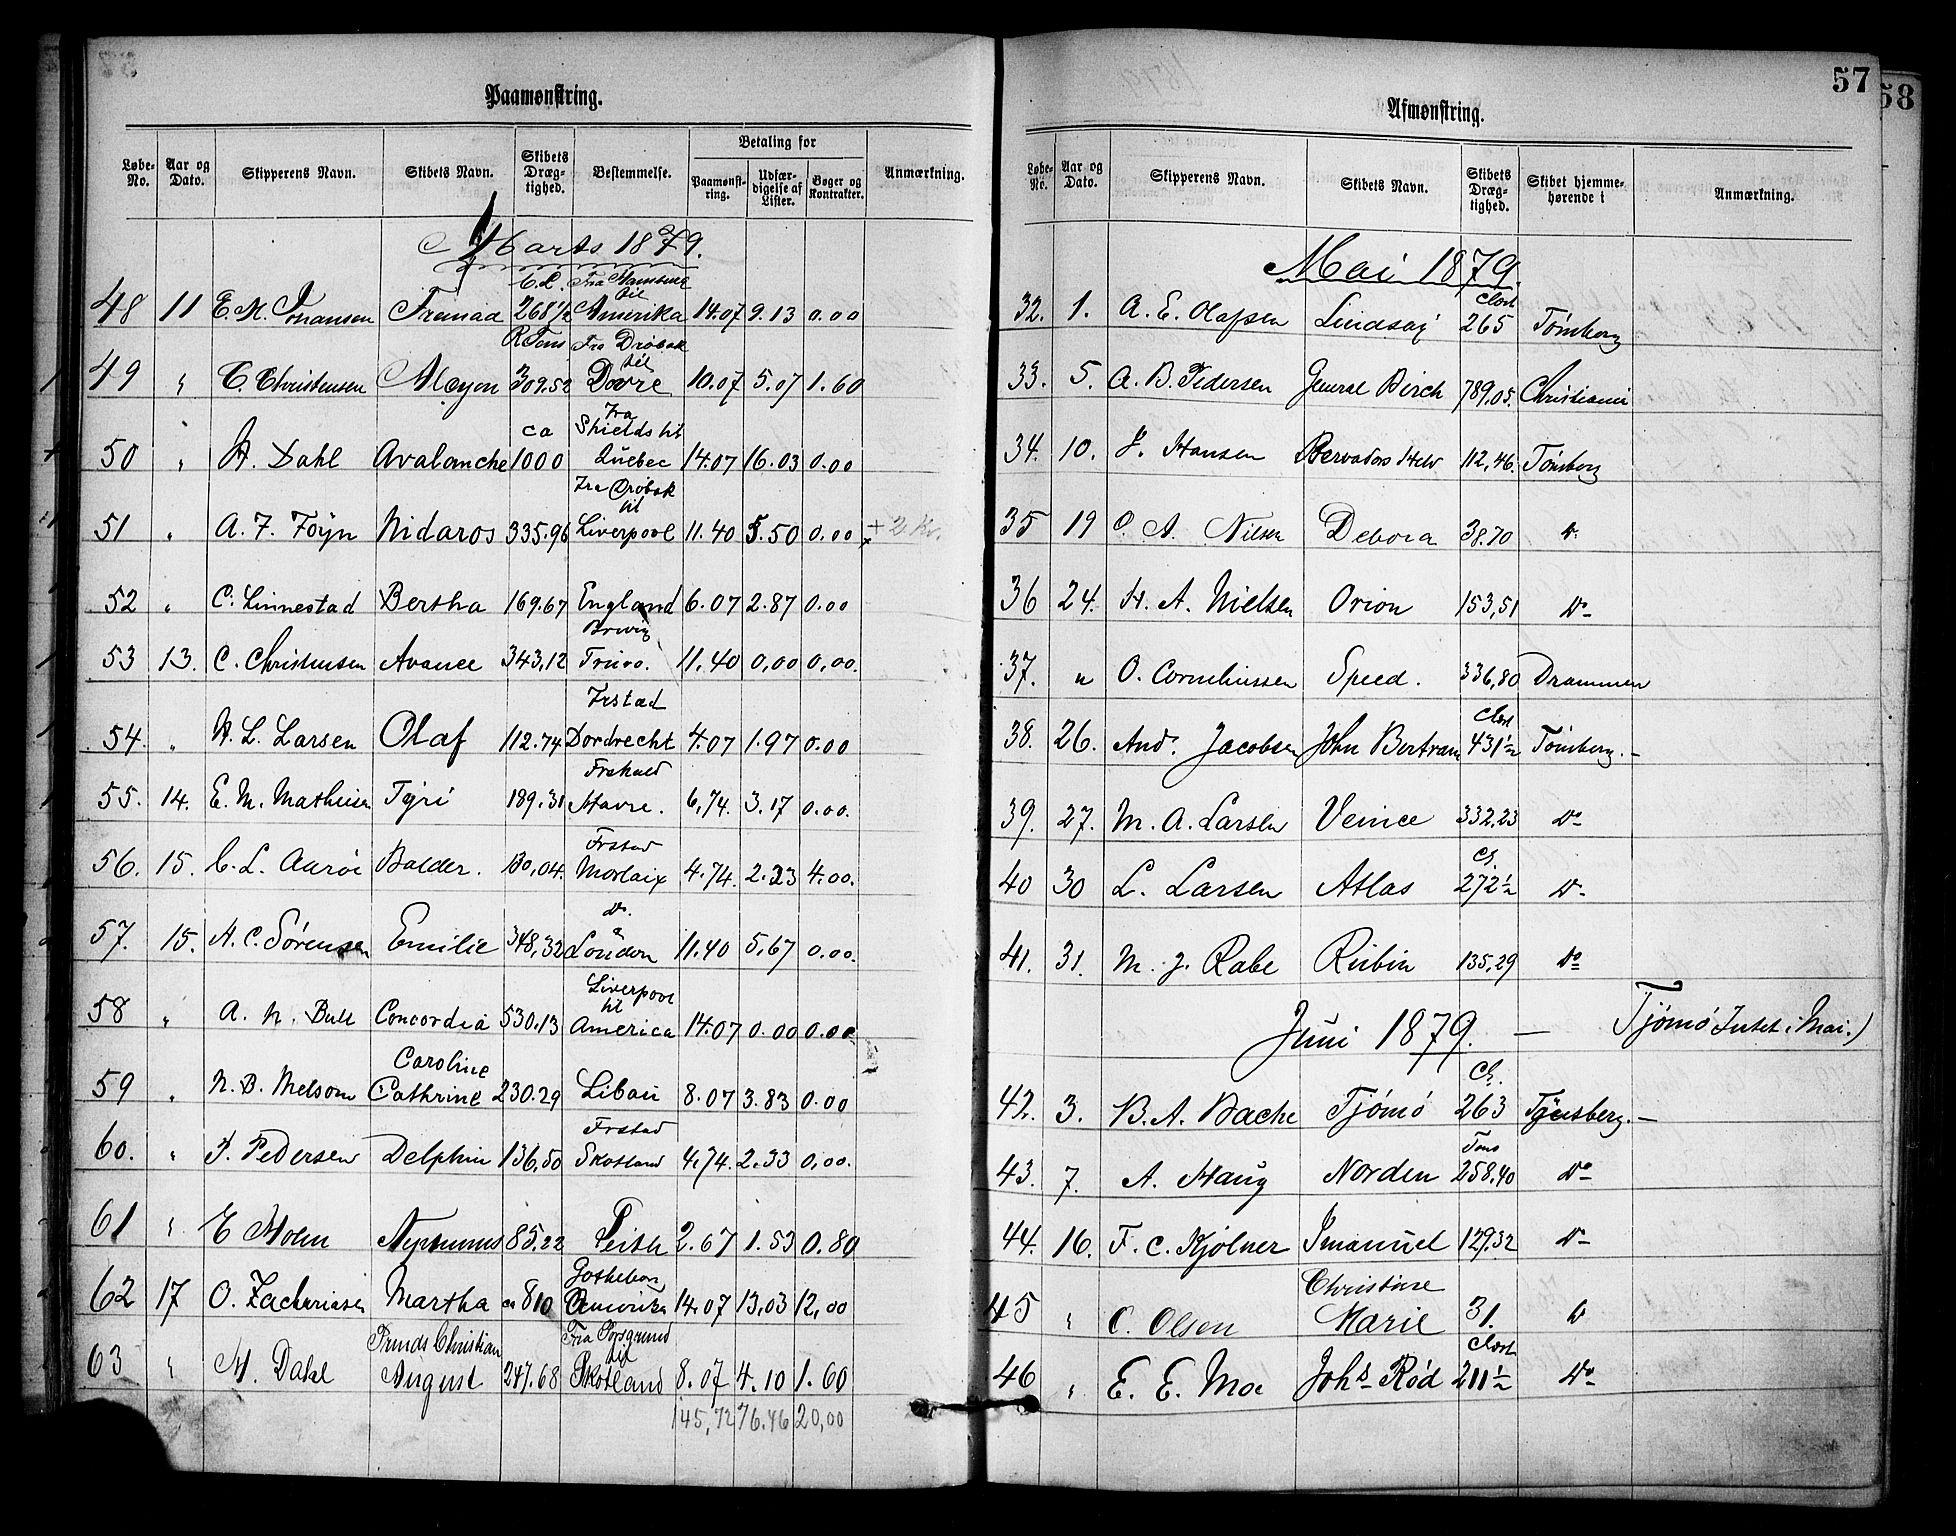 Paamønstring.
Løbe-No. Aar og Dato. Skipperens Navn. Skibets Navn. Skibets Dræg-tighed. Bestemmelse. Betaling for Paamønst-ring. Udfær-digelse af Lister. Bøger og Kontrakter. Anmærkning.
Marts 1879.
C.L. Fra Hamburg til
48 11 E. M. Johansen 268 1/2 Amerika 14.07 9.13 0.00
R Tons Fra Drøbak til
49 " C. Christensen Alcyon 309.52 Dovre 10.07 5.07 1.60
ca Fra Shields til
50 " H. Dahl Avalanche 1000 Quebec 14.07 16.03 0.00
Fra Drøbak til
51 " A. F. Föyn Nidaros 335.96 Liverpool 11.40 5.50 0.00 + 2 Kr.
52 " C. Linnestad Bertha 169.67 England 6.07 2.87 0.00
53 13. C. Christensen Avance 343,12 11.40 0,00 0,00.
54. " H. L. Larsen Olaf 112.74 Dordrecht 4.07 1.97 0.00
55. 14. E. M. Mathisen Tyri 189.31 Havre. 6,74. 3.17 0.00.
Frstad
56. 15. C. L. Aarøe Balder. 130,04. Morlaix 4.74. 2.23 4.00.
Do.
57. 15. A. C. Sörensen Emilie 348,32 London 11.40 5,67 0.00.
Liverpool til
58 " A. N. Bull Concordia 530.13 America 14.07 0.00 0.00
Caroline
59 " N. B. Melsom Cathrine 230.29 Libau 8.07 3.83 0.00
Frstad
60. " Pedersen Delphin 136,50 Skotland 4.74. 2.33 0,00.
61 " E Holm Neptunus 85.22 Leith 2.67 1.53 0.80
Gothebor
62 17 O. Zachariasen Martha ca 810 Amerika 14.07 13,03 12,00
Prinds Christian Fra Porsgrund til
63 " H. Dahl August 247.68 Skotland 8.07 4.10 1.60
145,72 76.46 20,00
57
58
Afmønstring.
Løbe-No. Aar og Dato. Skipperens Navn. Skibets Navn. Skibets Dræg-tighed. Skibet hjemme-hørende i Anmærkning.
Mai 1879.
Clst
32. 1. A. E. Olafsen Lindsay 265 Tønsberg
33. 5. A. B. Pedersen General Birch 789.05. Christiania
34. 10. J. Hansen 112,46. Tønsberg
35 19 O. A. Nilsen Debora 38.70 Do
36 24. H. A. Nielsen Orion 153,51 Do
37. " O. Corneliussen Speed. 336,80 Drammen
Clst
38. 26. And. Jacobsen John Bertram 431 1/2 Tønsberg.
39. 27. M. A. Larsen Venice 332.23 Do
Cl.
40 30 L. Larsen Atlas 272 1/2 Do
41. 31. M. J. Rabe Rubin 135,29 Do
Juni 1879. — Tjømø Intet i Mai.)
Cl.
42. 3. B. A. Bache Tjømø 263 Tønsberg.
Tons
43. 7. A. Haug Norden 258.40 Do
44. 16. F. C. Kjølner Imanuel 129.32 Do
Christine
45 " C. Olsen Marie 31. Do
Clst
46 " E. E. Moe Johs. Rød 211 1/2 Do